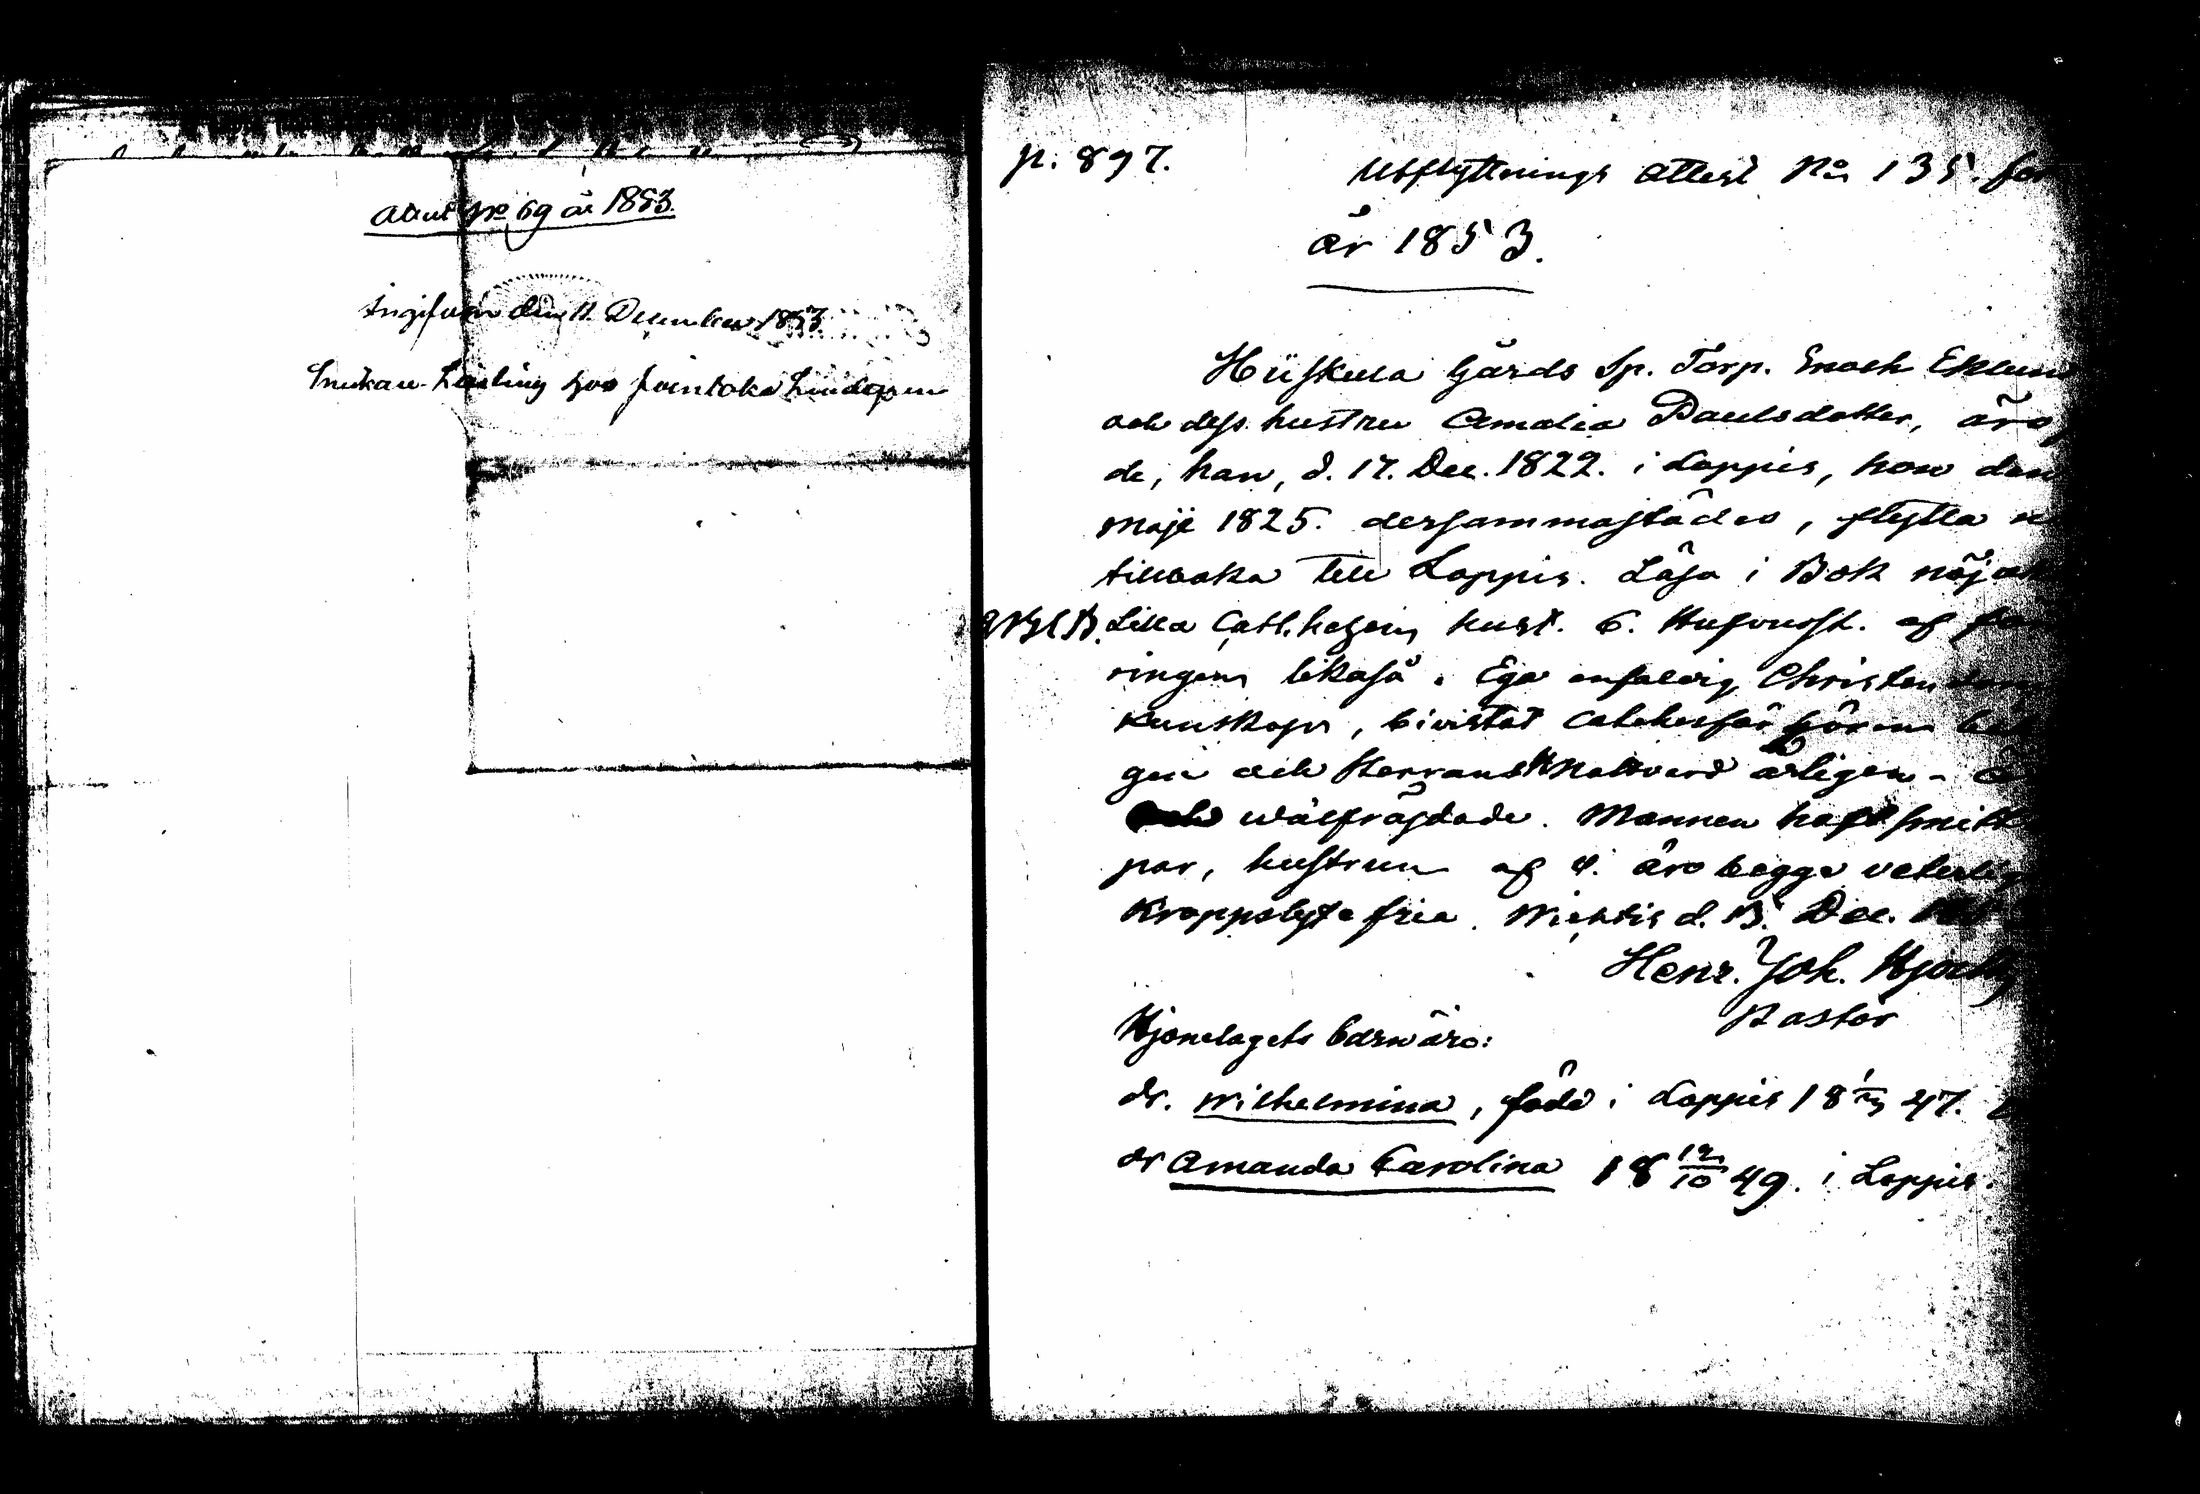 Attest No 69 år 1853.
Ingifven den 11 December 1853.
hos Lindgren
p. 897.
Utflyttnings Attest No 135. för
år 1853.
Hiiskula Gårds Sp. Torp. Enoch Eklun
och dess hustru Amalia Paulsdotter, äro
de, han, d. 17. Dec. 1822. i Loppis, hon den
Maji 1825. dersammastädes, flytta
tillbaka till Loppis. Läsa i Bok nöjak
Lilla Cath. hust. 6. Hufvudst. af
ringen likaså. Ega enfaldig Christen
kunskap, bivistat
gen och Herrans Nattvard årligen -
och wälfräjdade. Mannen haft smitt
por, hustrun af v. äro begge veterlig
Kroppslyte fria. Wichtis d. 13. Dec.
Henr. Joh.
Pastor
Hjonelagets barn äro:
dr. Wilhelmina, född i Loppis 18 47.
dr Amanda Carolina 18 12/10 49. i Loppis.